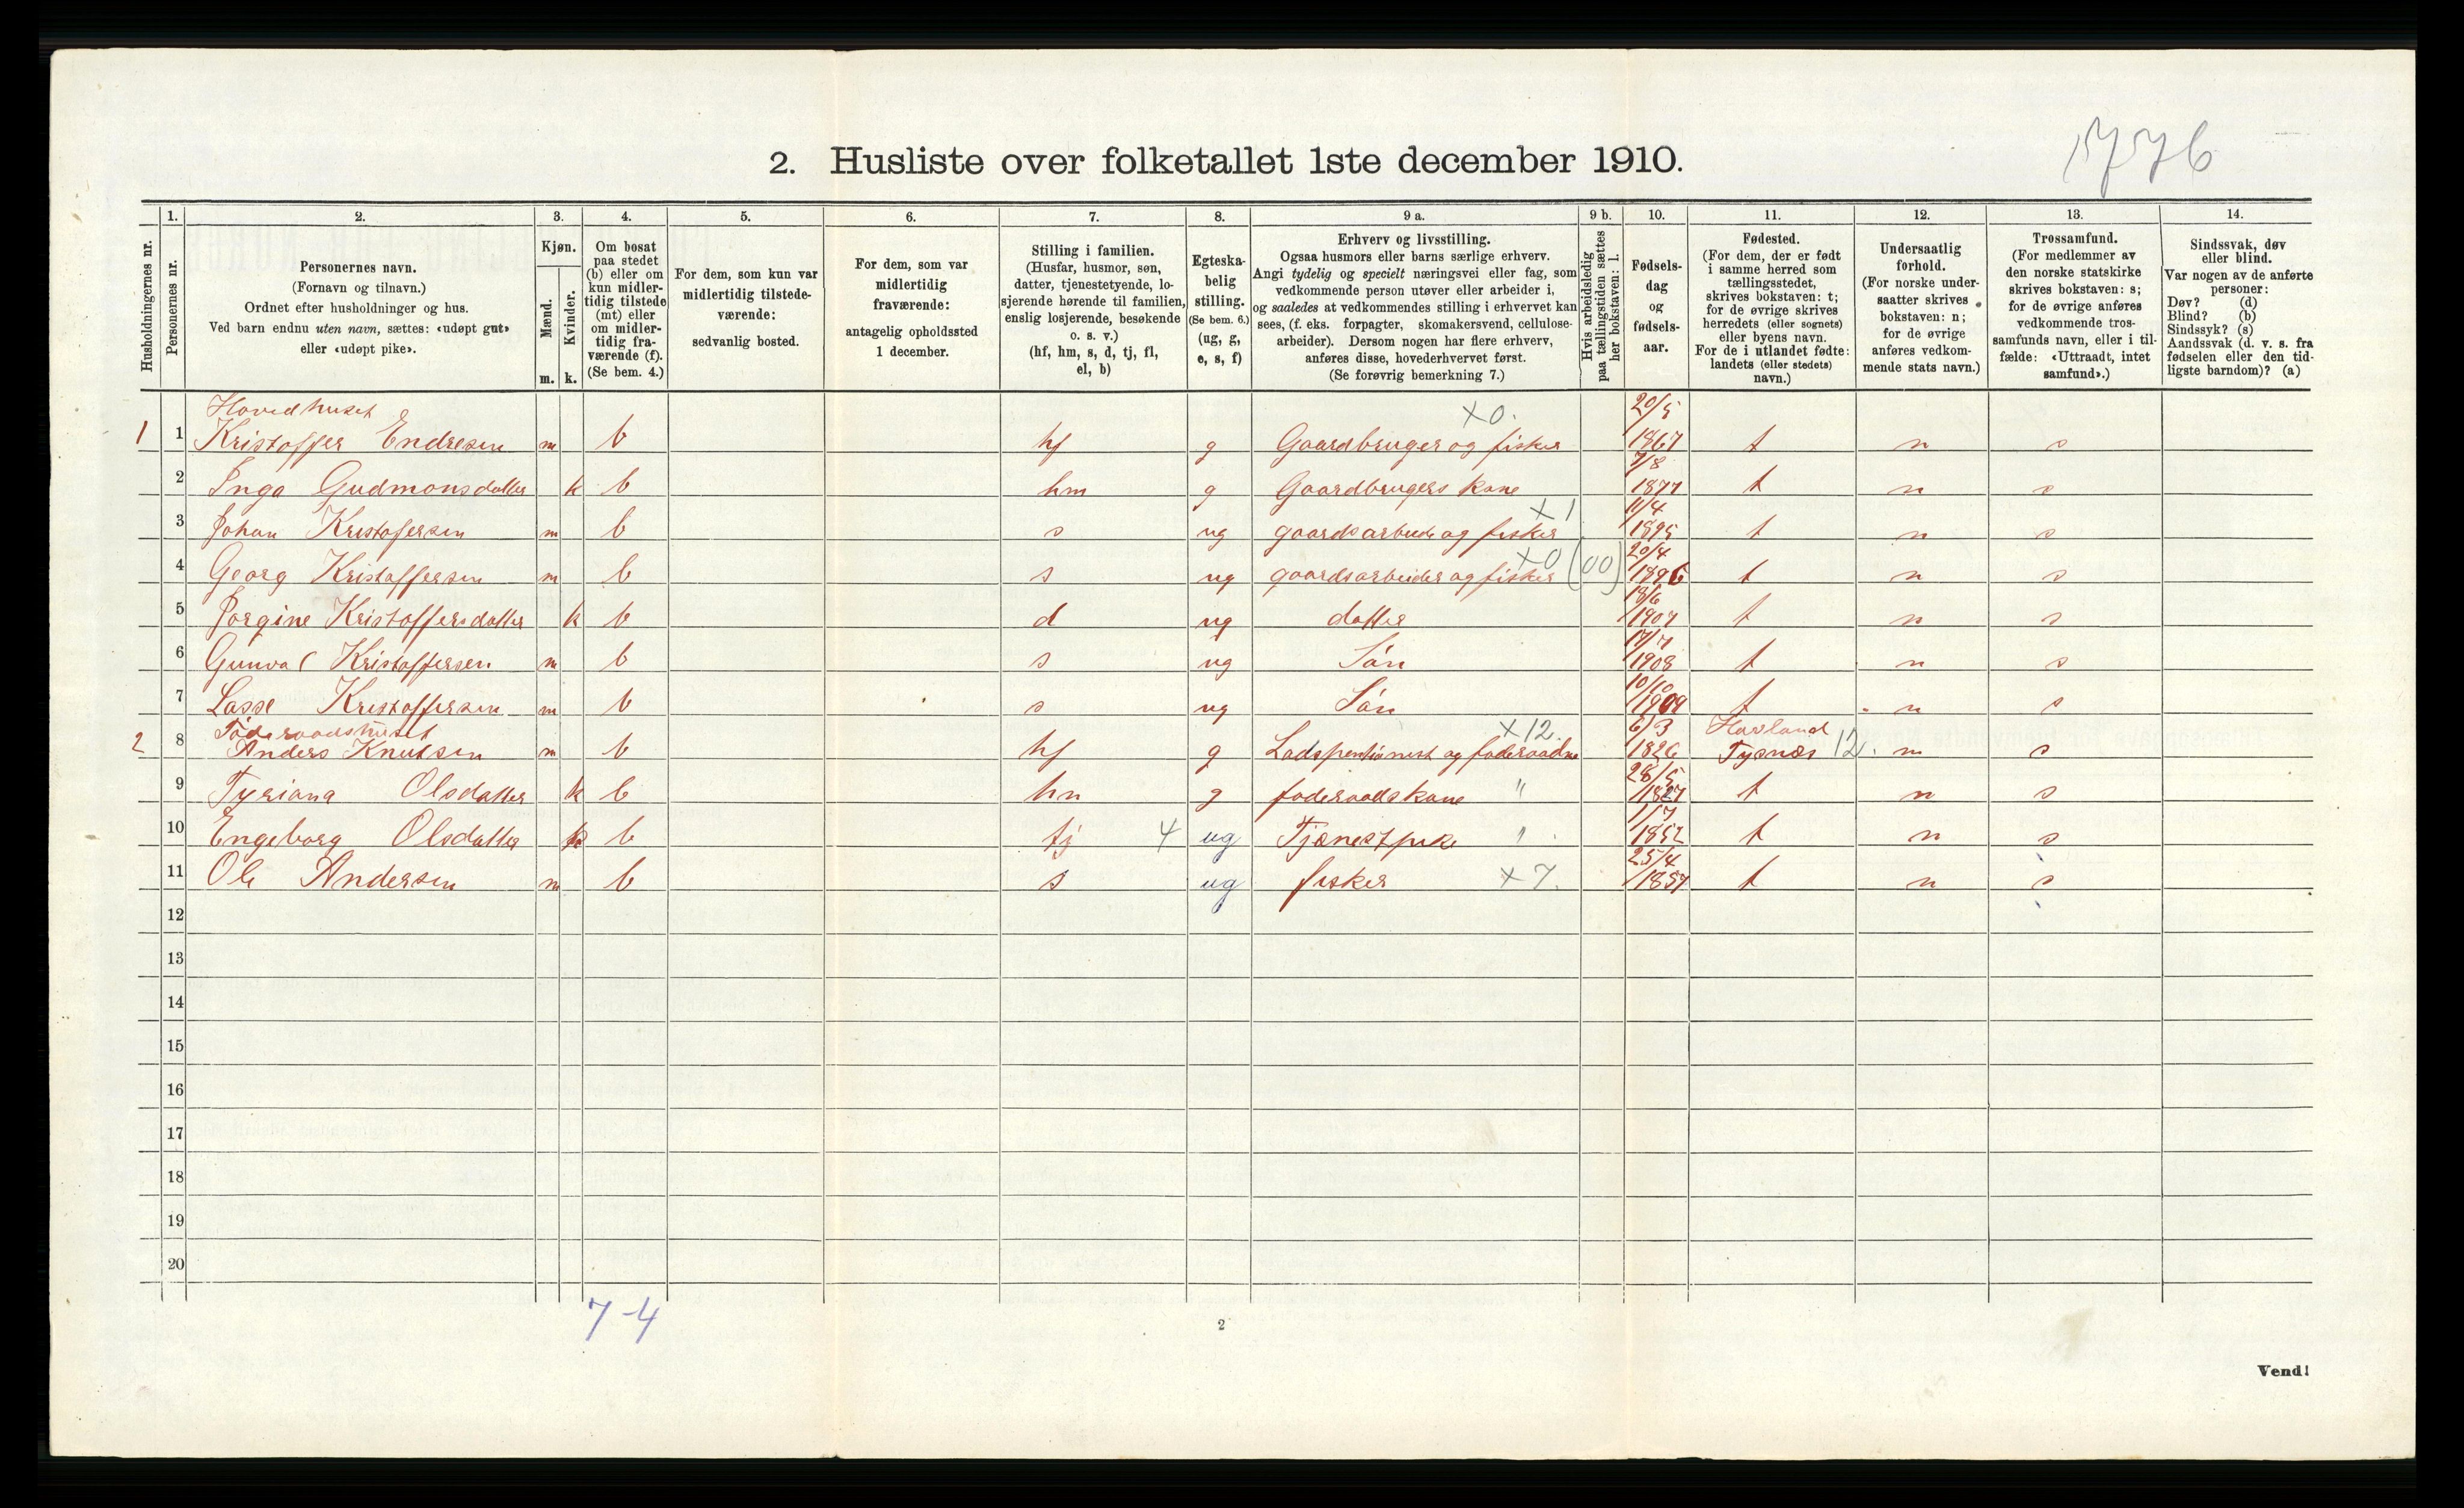 2. Husliste over folketallet 1ste december 1910.
1. 2. 3. 4. 5. 6. 7. 8. 9 a. 9 b. 10. 11. 12. 13. 14.
Husholdningernes nr.
Personernes nr.
Personernes navn.
(Fornavn og tilnavn.)
Ordnet efter husholdninger og hus.
Ved barn endnu uten navn, sættes: «udøpt gut»
eller «udøpt pike».
Kjøn.
Mænd.
Kvinder.
m. k.
Om bosat
paa stedet
(b) eller om
kun midler-
tidig tilstede
(mt) eller
om midler-
tidig fra-
værende (f).
(Se bem. 4.)
For dem, som kun var
midlertidig tilstede-
værende:
sedvanlig bosted.
For dem, som var
midlertidig
fraværende:
antagelig opholdssted
1 december.
Stilling i familien.
(Husfar, husmor, søn,
datter, tjenestetyende, lo-
sjerende hørende til familien,
enslig losjerende, besøkende
o. s. v.)
(hf, hm, s, d, tj, fl,
el, b)
Egteska-
belig
stilling.
(Se bem. 6.)
(ug, g,
e, s, f)
Erhverv og livsstilling.
Ogsaa husmors eller barns særlige erhverv.
Angi tydelig og specielt næringsvei eller fag, som
vedkommende person utøver eller arbeider i,
og saaledes at vedkommendes stilling i erhvervet kan
sees, (f. eks. forpagter, skomakersvend, cellulose-
arbeider). Dersom nogen har flere erhverv,
anføres disse, hovederhvervet først.
(Se forøvrig bemerkning 7.)
Hvis arbeidsledig
paa tællingstiden sættes
her bokstaven: l.
Fødsels-
dag
og
fødsels-
aar.
Fødested.
(For dem, der er født
i samme herred som
tællingsstedet,
skrives bokstaven: t;
for de øvrige skrives
herredets (eller sognets)
eller byens navn.
For de i utlandet fødte:
landets (eller stedets)
navn.)
Undersaatlig
forhold.
(For norske under-
saatter skrives
bokstaven: n;
for de øvrige
anføres vedkom-
mende stats navn.)
Trossamfund.
(For medlemmer av
den norske statskirke
skrives bokstaven: s;
for de øvrige anføres
vedkommende tros-
samfunds navn, eller i til-
fælde: «Uttraadt, intet
samfund».)
Sindssvak, døv
eller blind.
Var nogen av de anførte
personer:
Døv? (d)
Blind? (b)
Sindssyk? (s)
Aandssvak (d. v. s. fra
fødselen eller den tid-
ligste barndom)? (a)
Hovedhuset x0. 20/5
1 1 Kristoffer Endresen m b hf g Gaardbruger og fisker 1867 t n s
7/8
2 Inga Gudmonsdatter k b hm g Gaardbrugers kone 1877 t n s
x1 11/4
3 Johan Kristofersen m b s ug gaardsarbeide og fisker 1895 t n s
x0 (00) 20/4
4 Georg Kristoffersen m b s ug gaardsarbeider og fisker 1896 t n s
18/6
5 Jorgine Kristoffersdatter k b d ug datter 1907 t n s
17/7
6 Gunval Kristoffersen m b s ug Sön 1908 t n s
10/10
7 Lasse Kristoffersen m b s ug Sön 1909 t n s
Föderaadshuset x12. 6/3 Havland
2 8 Anders Knutsen m b hf g Ladspentionist og foderaadm 1826 Tysnæs 12. n s
28/5
9 Tyriana Olsdatter k b hm g foderaadskone " 1827 t n s
1/7
10 Engeborg Olsdatter k b tj 4 ug Tjænestpike 1852 t n s
25/4
11 Ole Andersen m b s ug fisker x7. 1857 t n s
12
13
14
15
16
17
18
19
20
7-4
2
Vend!